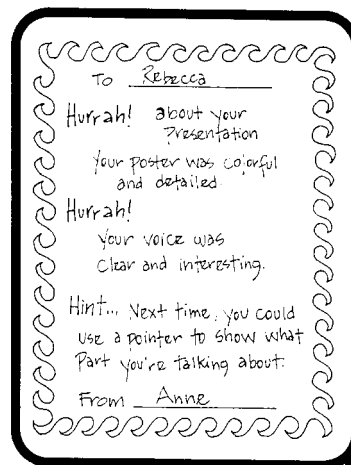 To Rebecca
Hurrah! about your
Presentation
Your poster was colorful
and detailed.
Hurrah!
Your voice was
Clear and interesting.
Hint... Next time, you could
use a pointer to show what
Part you're talking about.
From Anne